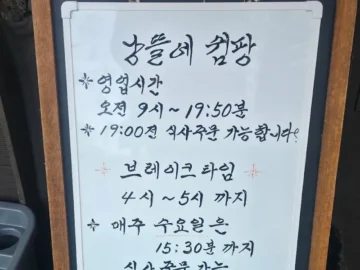 낭뜰에 쉼팡
* 영업시간
오전 9시~19:50분
* 19:00전 식사주문 가능합니다!
브레이크타임
4시~5시 까지
* 매주 수요일은
15:30분 까지
식사주문 가능